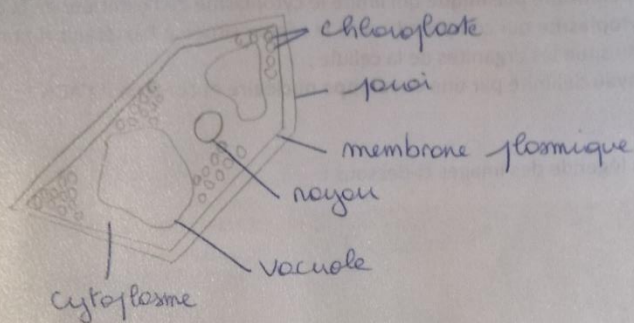 chloroplaste
paroi
membrane plasmique
noyau
vacuole
cytoplasme